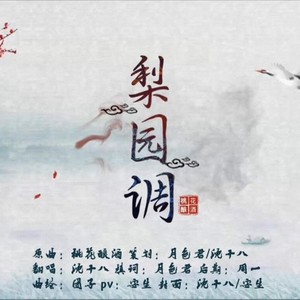 梨园调
桃花酿酒
原曲:桃花酿酒 策划:月色君/沈千八
翻唱:沈千八 填词:月色君 后期:周一
曲绘:团子 pv:安生 封面:沈千八/安生